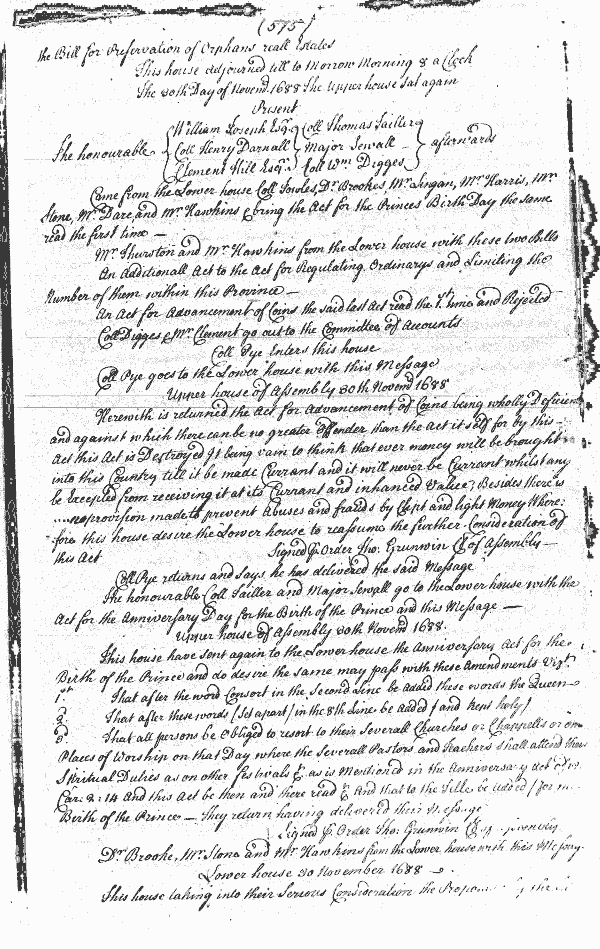 (575)
the Bill for Preservation of Orphans reall Estates
This house adjourned till to Morrow Morning 8 a Clock
The 30th Day of Novemb 1688 The Upper house Sat again
Present
The honourable { William Joseph Esqr. Coll Henry Darnall Clement Hill Esqr. } { Coll Thomas Tailler Major Sewall Coll Wm. Digges } afterwards
Came from the Lower house Coll Jowles, Dr. Brookes, Mr. Lingan, Mr. Harris, Mr.
Stone, Mr. Dare and Mr. Hawkins & bring the Act for the Princes Birth Day the same
read the first time —
Mr. Thurston and Mr. Hawkins from the Lower house with these two Bills
An Additionall Act to the Act for Regulating Ordinarys and Limiting the
Number of them within this Province —
An Act for Advancement of Coins the said last Act read the 1st. time and Rejected
Coll Digges & Mr. Clement go out to the Committee of Accounts
Coll Pye Enters this house
Coll Pye goes to the Lower house with this Message
Upper house of Assembly 30th Novemb 1688
Herewith is returned the Act for Advancement of Coins being wholly Deficient
and against which there can be no greater Offender than the Act it self for by this
Act this Act is Destroyed It being vain to think that ever money will be brought
into this Country till it be made Currant and it will never be Currant whilst any
be Excepted from receiving it at its Currant and inhanced Value; Besides there is
no provision made to prevent Abuses and frauds by Clipt and light Money Where:
fore this house desire the Lower house to reassume the further Consideration of
this Act Signed p. Order Tho: Grunwin Cl of Assembly —
Coll Pye returns and says he has delivered the said Message
The honourable Coll Tailler and Major Sewall go to the Lower house with the
Act for the Anniversary Day for the Birth of the Prince and this Message —
Upper house of Assembly 30th Novemb 1688.
This house have sent again to the Lower house the Anniversary Act for the
Birth of the Prince and do desire the same may pass with these Amendments Vizt.
1st. That after the word Consort in the Second Line be Added these words the Queen
2. That after these words (Set apart) in the 8th Line be Added (and kept holy)
3. That all persons be Obliged to resort to their Severall Churches or Chappells or
Places of Worship on that Day where the Severall Pastors and Teachers shall attend their
Spiritual Duties as on other festivals & as is Mentioned in the Anniversary Act
Car: 2: 14 And this Act be then and there read & And that to the Title be added (for
Birth of the Prince — They return having delivered their Message
Signed p Order Tho: Grunwin Cl
Dr. Brooke, Mr. Stone and Mr. Hawkins from the Lower house with this Message.
Lower house 30 November 1688
This house taking into their Serious Consideration the by the